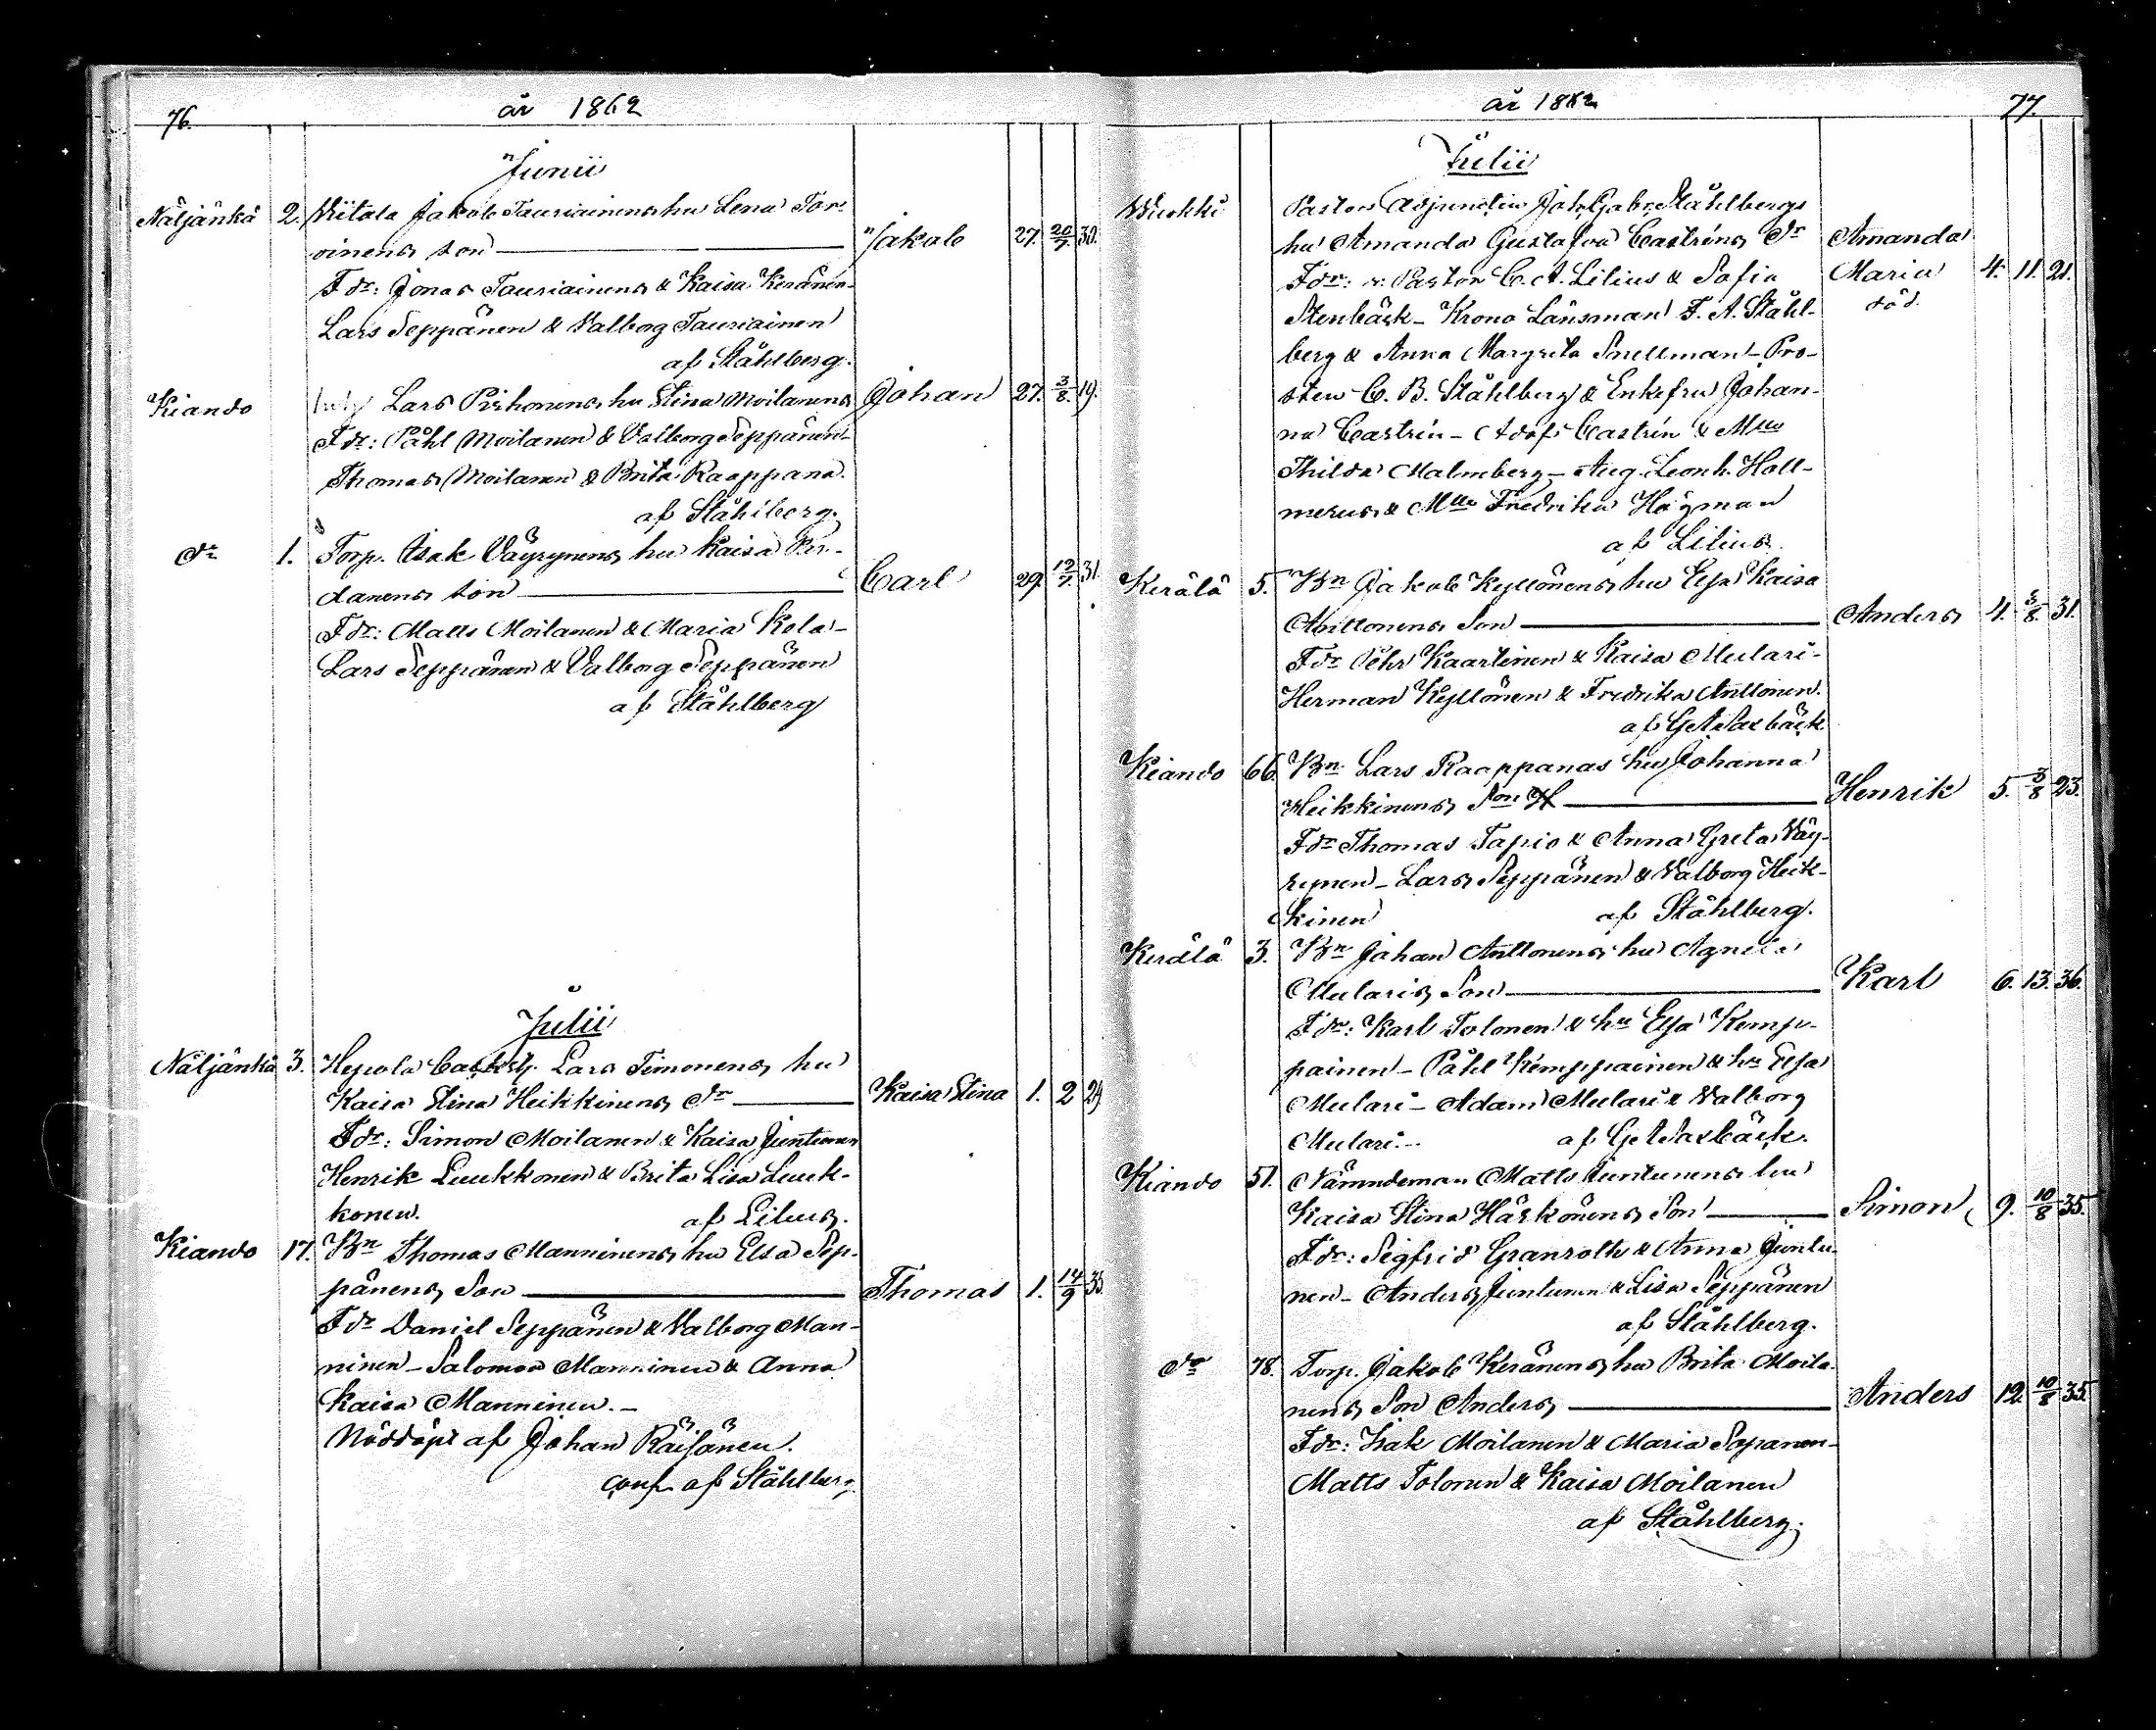 76.
år 1862
Junii
Näljänkä 2. Niitala Jakob Tauriainens hu Lena Tor-
vinens son Jakob 27. 20/7. 30.
Fdr: Jonas Tauriainens & Kaisa Keränen-
Lars Seppänen & Valborg Tauriainen
af Ståhlberg.
Kiando Lars Pirhonens hu Stina Moilanens Johan 27. 3/8. 19.
Fdr: Påhl Moilanen & Valborg Seppänen-
Thomas Moilanen & Brita Raappana.
af Ståhlberg.
Dr 1. Torp. Isak Väyrynens hu Kaisa Par-
danens son Carl 29. 12/7. 31.
Fdr: Matts Moilanen & Maria Kela-
Lars Seppänen & Valborg Seppänen
af Ståhlberg
Julii
Näljänkä 3. Hepola Lars Timonens hu
Kaisa Stina Heikkinens dr Kaisa Stina 1. 2 29
Fdr: Simon Moilanen & Kaisa Juntunen
Henrik Luukkonen & Brita Lisa Luuk-
konen. af Lilius.
Kiando 17. Bn Thomas Manninens hu Elsa Sep-
pänens Son Thomas 1. 14/9 35
Fdr Daniel Seppänen & Valborg Man-
ninen- Salomon Manninen & Anna
Kaisa Manninen.-
Nöddöpt af Johan Räisänen.
conf. af Ståhlberg.
år 1862
77.
Julii
Wuokki Pastors Adjuncten Joh. Gabr. Ståhlbergs
hu Amanda Gustafva Castréns Dr Amanda
Fdr: v. Pastor C. A. Lilius & Sofia Maria 4. 11. 21.
Stenbäck- Krono Länsman F. A. Ståhl- död.
berg & Anna Margreta Snellman- Pro-
sten C. B. Ståhlberg & Enkefru Johan-
na Castrén- Adolf Castrén & Mlle
Thilda Malmberg- Aug. Leonh. Holl-
merus & Mlle Fredrika Högman
af Lilius.
Kerälä 5. Bn Jakob Kyllönens hu Elsa Kaisa
Anttonens Son Anders 4. 3/8. 31.
Fdr Pehr Kaartinen & Kaisa Mulari-
Herman Kyllönen & Fredrika Anttonen.
af G A Saxbäck.
Kiando 66. Bn Lars Raappanas hu Johanna
Heikkinens Son Henrik 5. 3/8 23.
Fdr Thomas Tapio & Anna Greta Väy-
rynen- Lars Seppänen & Valborg Heik-
kinen af Ståhlberg.
Kerälä 3. Bn Johan Anttonens hu Agneta
Mularis Son Karl 6. 13. 36.
Fdr: Karl Tolonen & hu Elsa Kemp-
painen- Påhl Kemppainen & hu Elsa
Mulari- Adam Mulari & Valborg
Mulari.- af G A Saxbäck.
Kiando 51. Nämndeman Matts Juntunens hu
Kaisa Stina Härkönens Son Simon 9. 10/8 35.
Fdr: Segfrid Granroth & Anna Juntu-
nen- Anders Juntunen & Lisa Seppänen
af Ståhlberg.
Dr 78. Torp. Jakob Keränens hu Brita Moila-
nens Son Anders Anders 12 10/8 35.
Fdr: Isak Moilanen & Maria Sopanen-
Matts Tolonen & Kaisa Moilanen
af Ståhlberg.